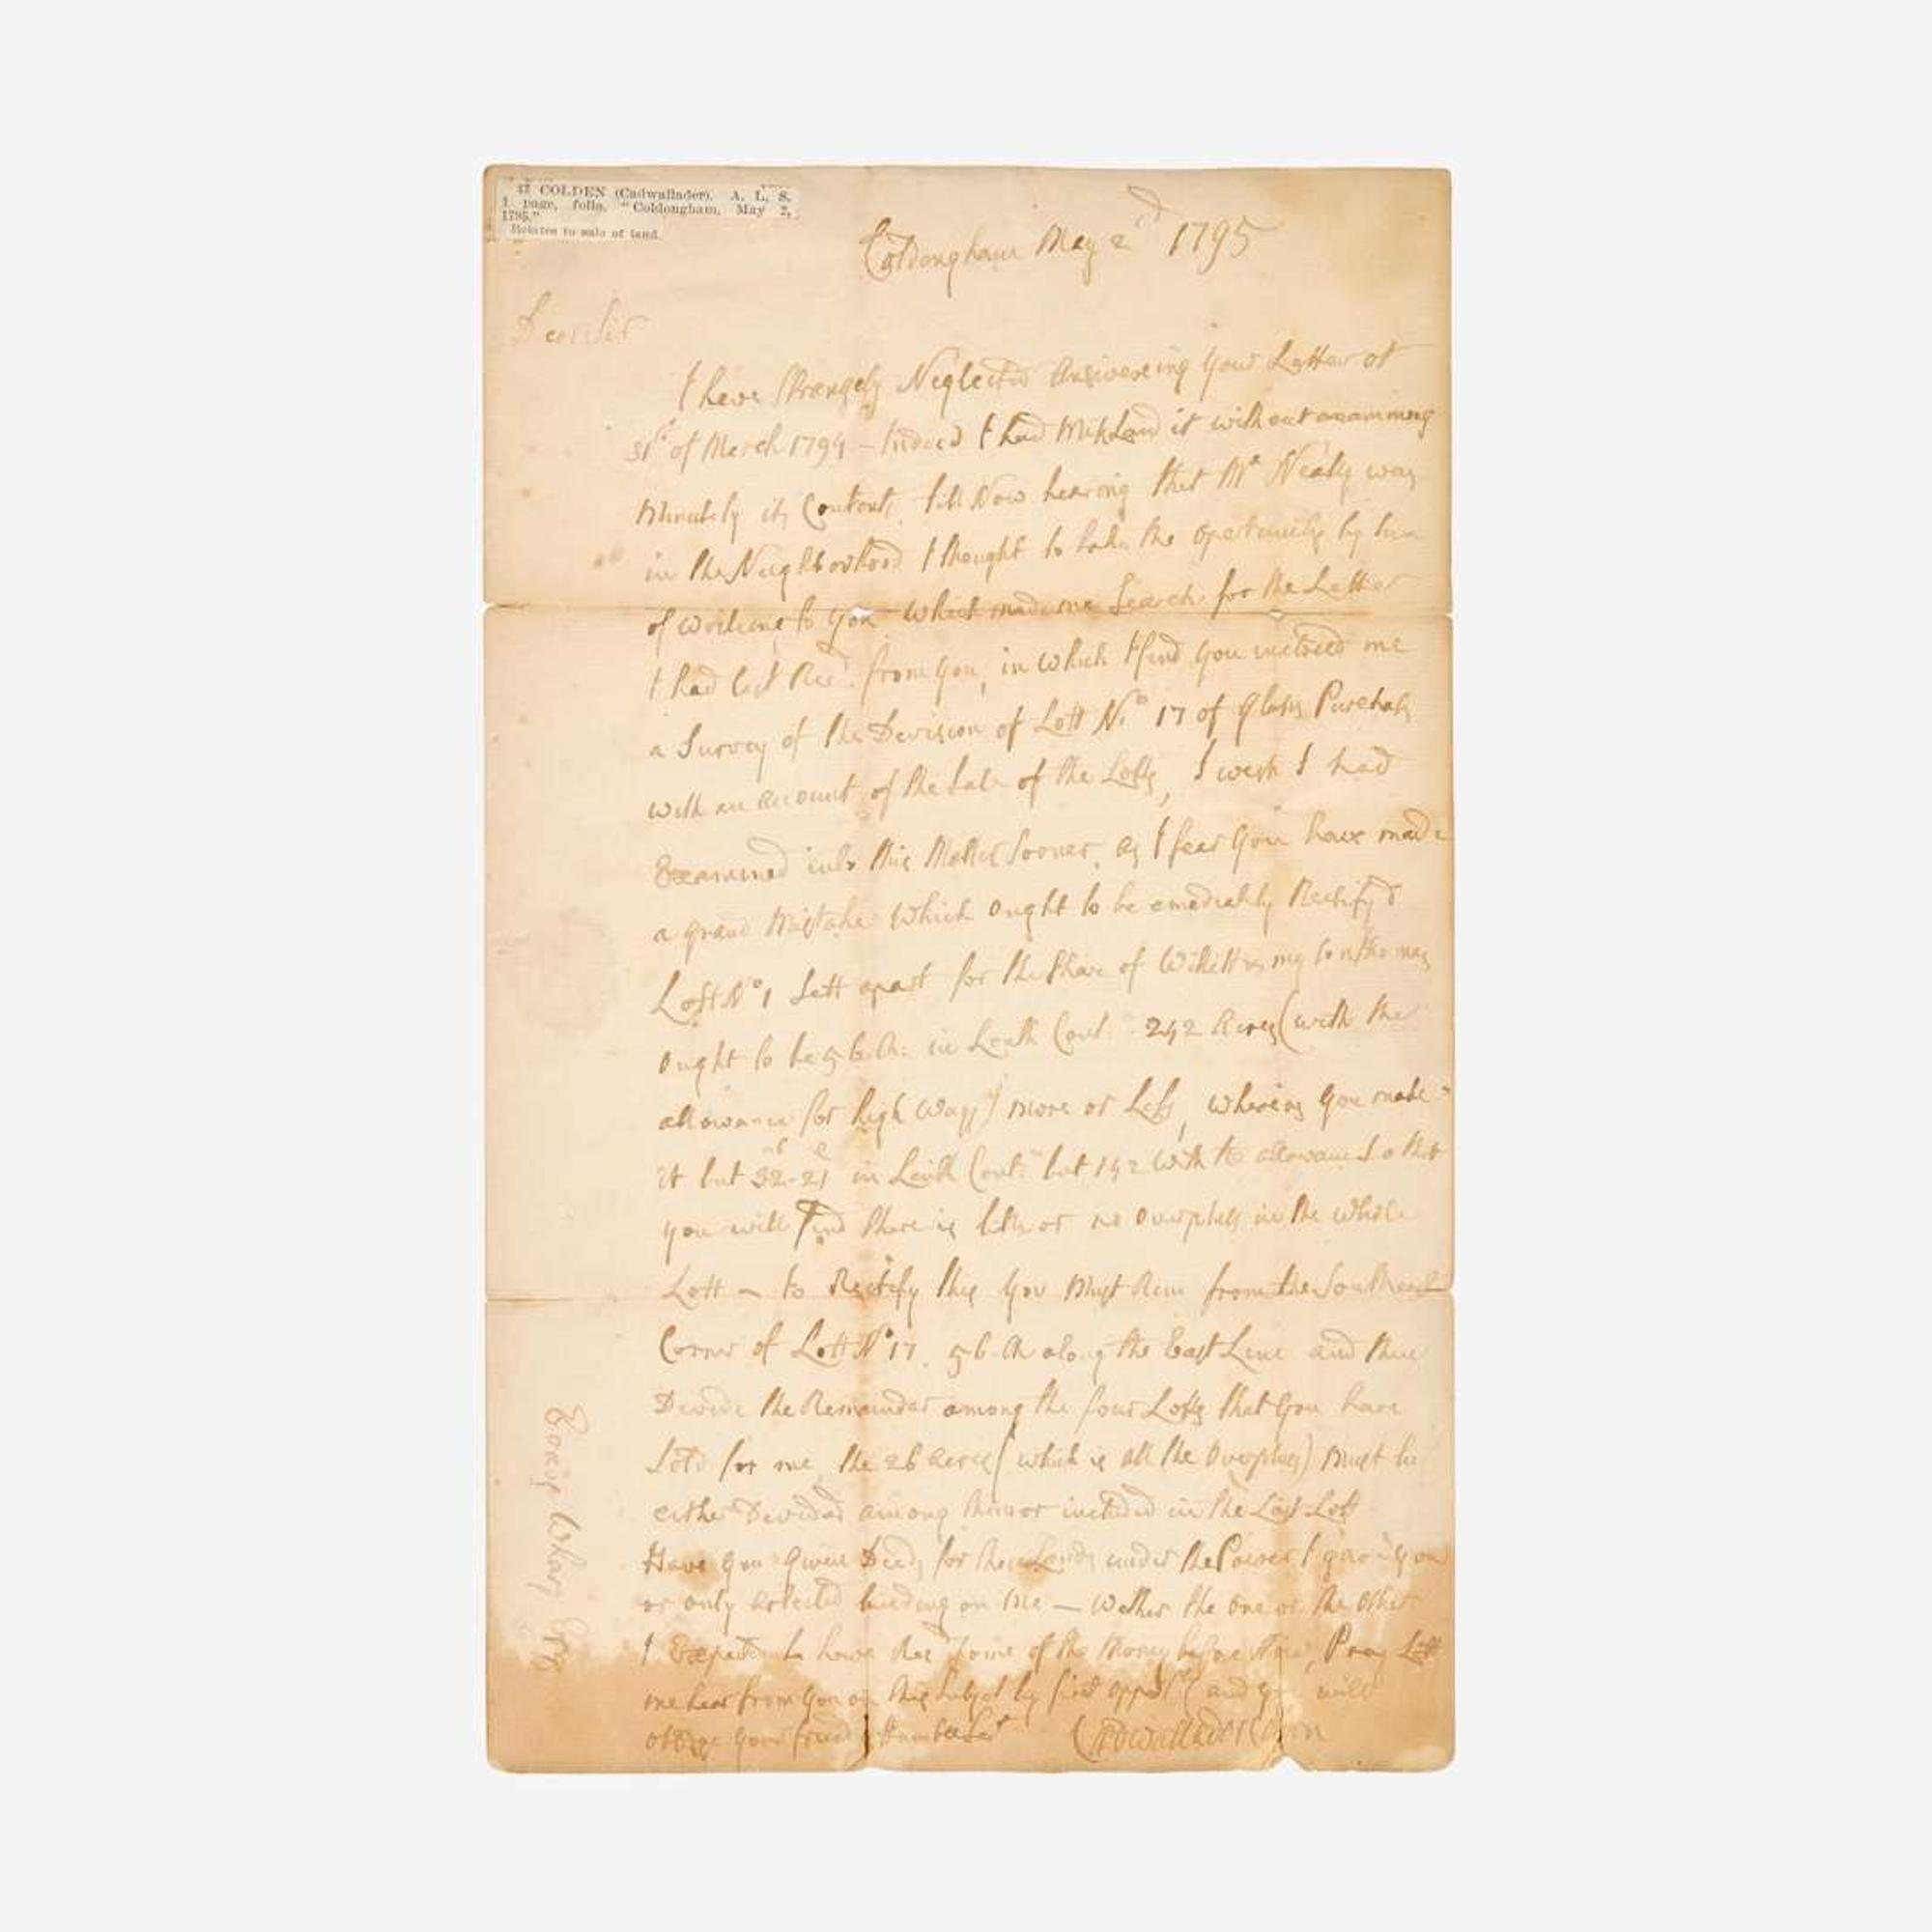 42 COLDEN (Cadwallader). A. L. S.
1 page, folio. "Coldongham, May 2,
1795."
Relates to sale of land.
Coldengham May 2d 1795
Dear Sir
I have Strangely Neglected Answereing your Letter of
31st of March 1794 – Indeed I had Mislaid it without examining
Minutely its Contents, till Now hearing that Mr Nealy was
in the Neighborhood I thought to take the opertunity by him
of writeing to you which made me Search for the Letter
I had last Recd. from you, in which I find you inclosed me
a Survey of the Devision of Lott No 17 of Glass Purchass
with an account of the Sale of the Lotts, I wish I had
Examined into this Matter Sooner, as I fear you have made
a grand Mistake Which ought to be emediatly Rectifyd
Lott No 1 Sett apart for the Share of my Son Thomas
ought to be 56 Ch: in Lenth Cont. 242 Acres (with the
allowance for high Ways) more or Less, whereas you make
it but 32-21 in Lenth Cont. but 142 with the allowance So that
you will find there is litle or no Overpluss in the Whole
Lott – to Rectify this you Must Run from the Southeast
Corner of Lott No 17. 56 Ch along the East Line and then
Devide the Remainder among the four Lotts that you have
Sold for me, the 26 acres (which is all the Overpluss) must be
either Devided among them or included in the Last Lott
Have you given Deeds for these Lands under the Power I gave you
or only Articles binding on Me — Wether the one or the other
I Expected to have had Some of the Money before Now, Pray Lett
me hear from you on this Subject by first oppty and you will
oblige your friend & Humble Sert Cadwallader Colden